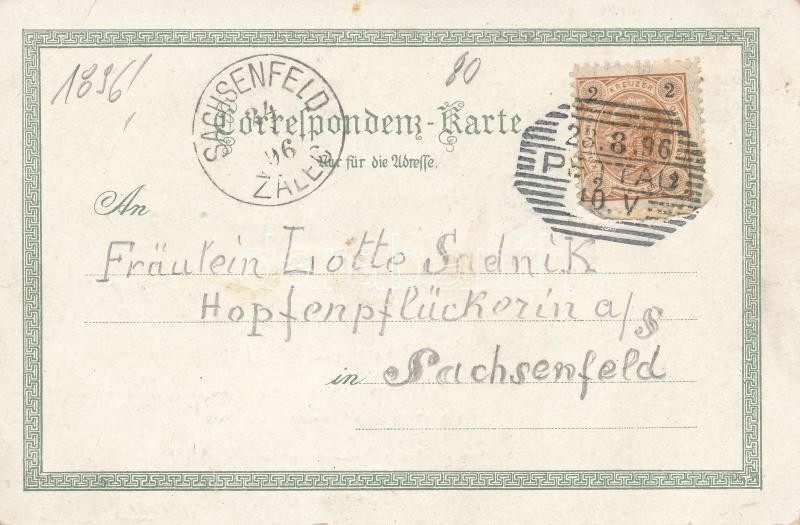 1896
80
SACHSENFELD
24
96
ŽALEC
Correspondenz-Karte
Nur für die Adresse.
KREUZER
2 2
23.8.96
PETTAU
10.V
2 2
An
Fräulein Lotte Sadnik
Hopfenpflückerin a/S
in Sachsenfeld